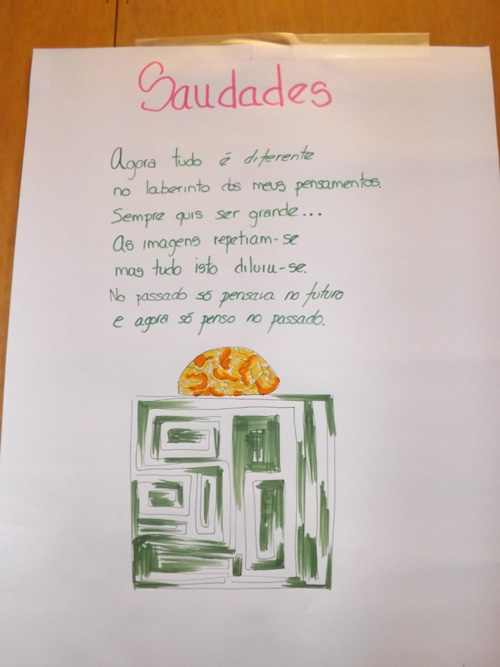 Saudades
Agora tudo é diferente
no laberinto dos meus pensamentos.
Sempre quis ser grande...
As imagens repetiam-se
mas tudo isto diluiu-se.
No passado só pensava no futuro
e agora só penso no passado.